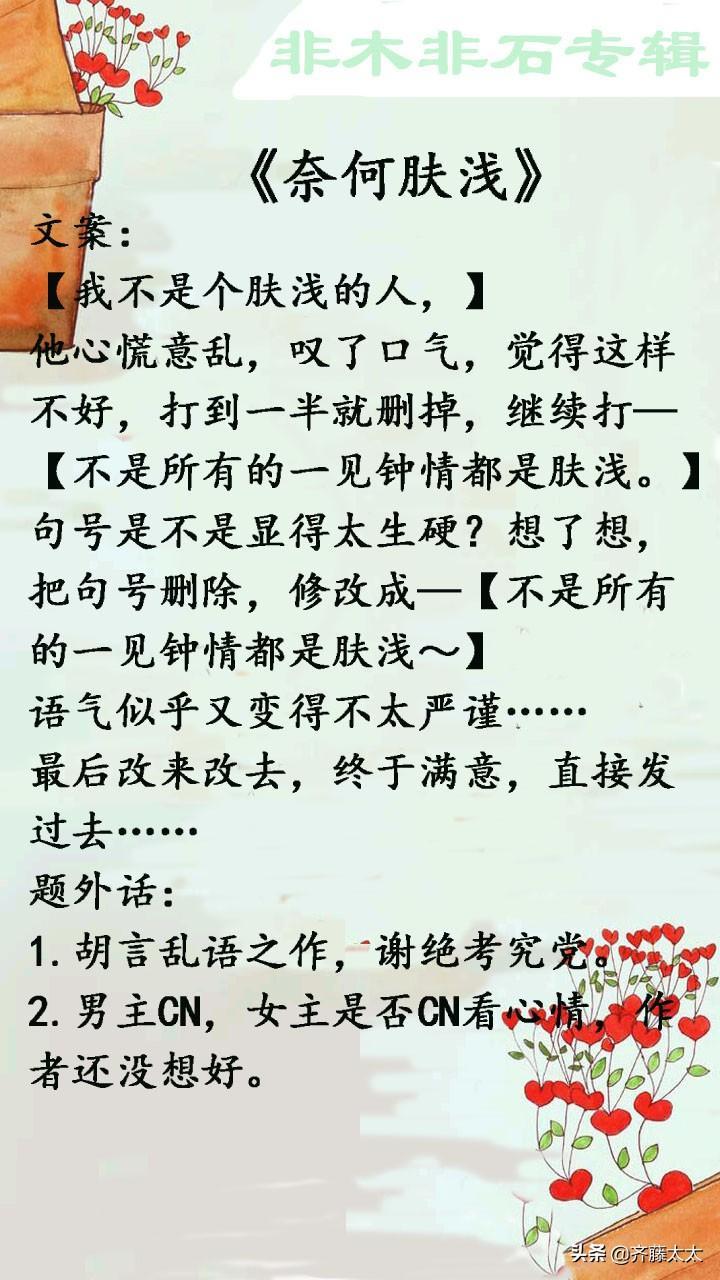 非木非石专辑
《奈何肤浅》
文案：
【我不是个肤浅的人，】
他心慌意乱，叹了口气，觉得这样
不好，打到一半就删掉，继续打—
【不是所有的一见钟情都是肤浅。】
句号是不是显得太生硬？想了想，
把句号删除，修改成—【不是所有
的一见钟情都是肤浅～】
语气似乎又变得不太严谨……
最后改来改去，终于满意，直接发
过去……
题外话：
1.胡言乱语之作，谢绝考究党。
2.男主CN，女主是否CN看心情，作
者还没想好。
头条 @齐藤太太